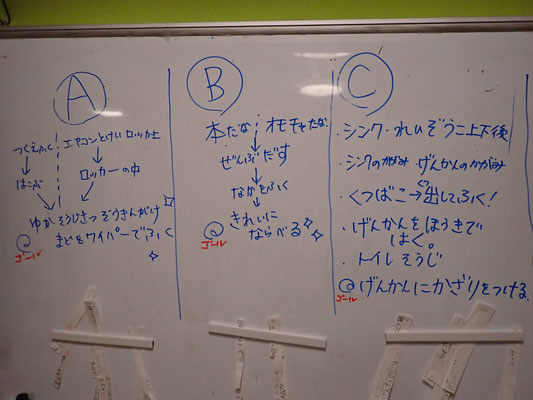 A
つくえふく
エアコンとけい ロッカー上
はこぶ
ロッカーの中
ゆか そうじきつ ぞうきんがけ
まどをワイパーでふく
ゴール
B
本だな
オモチャだな
ぜんぶだす
なかをふく
きれいに
ならべる
ゴール
C
・シンク・れいぞうこ上下後
・シンクのかがみ・げんかんのかがみ
・くつばこ→出してふく!
くつ
・げんかんをほうきで
はく。
・トイレそうじ
げんかんにかざりをつける
ゴール